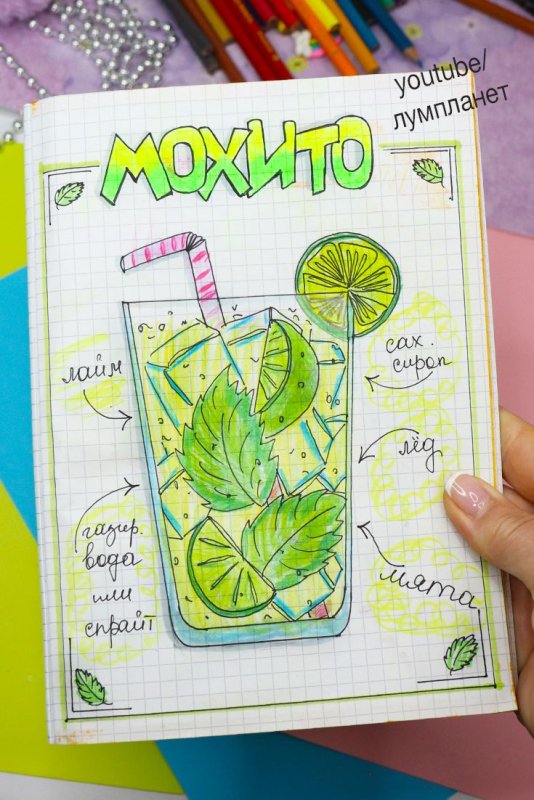 youtube/
лумпланет
МОХИТО
лайм
сах.
сироп
лёд
газир.
вода
или
спрайт
мята